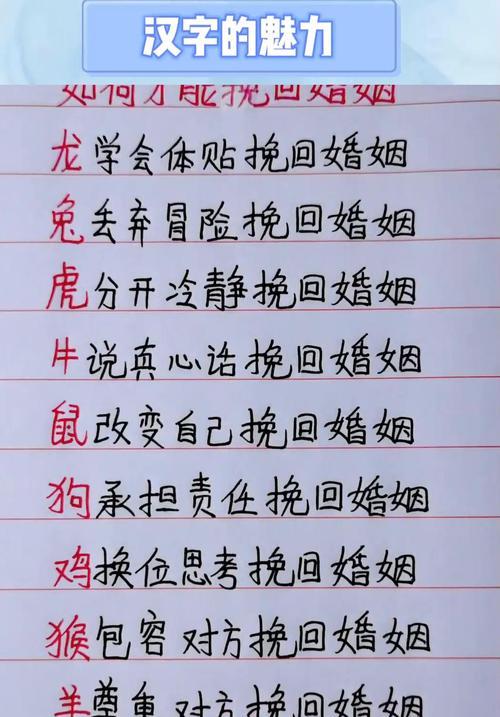 汉字的魅力
如何才能挽回婚姻
龙学会体贴挽回婚姻
兔丢弃冒险挽回婚姻
虎分开冷静挽回婚姻
牛说真心话挽回婚姻
鼠改变自己挽回婚姻
狗承担责任挽回婚姻
鸡换位思考挽回婚姻
猴包容对方挽回婚姻
羊尊重对方挽回婚姻